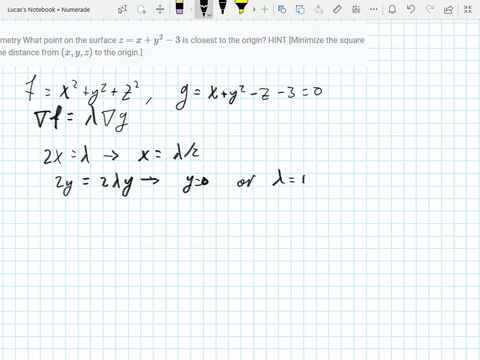 Lucas's Notebook • Numerade
metry What point on the surface z = x + y² − 3 is closest to the origin? HINT [Minimize the square
he distance from (x, y, z) to the origin.]
f = x² + y² + z² , g = x + y² − z − 3 = 0
∇f = λ∇g
2x = λ → x = λ/2
2y = 2λy → y=0 or λ = 1